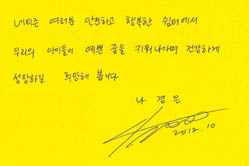 네티즌 여러분 안전하고 행복한 쉼터에서
우리의 아이들이 예쁜 꿈을 키워나가며 건강하게
성장하길 희망해 봅니다
나 경 은
2012. 10